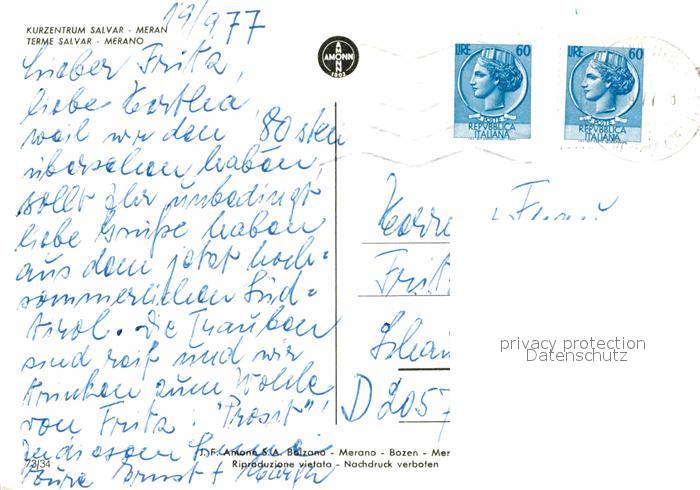 19/9 77
KURZENTRUM SALVAR - MERAN
TERME SALVAR - MERANO
Lieber Fritz,
liebe Hertha,
weil wir den 80sten
übersehen haben,
sollt Ihr unbedingt
liebe Grüße haben
aus dem jetzt hoch-
sommerlichen Süd-
tirol. Die Trauben
sind reif und wir
trinken zum Wohle
von Fritz: "Prosit"!
In diesem Sinne
Eure Ernst +
73/34
AMONN
AMONN
1802
LIRE 60
POSTE
REPVBBLICA
ITALIANA
LIRE 60
POSTE
REPVBBLICA
ITALIANA
Herrn Frau
Fritz
D 2057
privacy protection
Datenschutz
J. F. Amonn S.A. Bolzano - Merano - Bozen - Mer
Riproduzione vietata - Nachdruck verboten